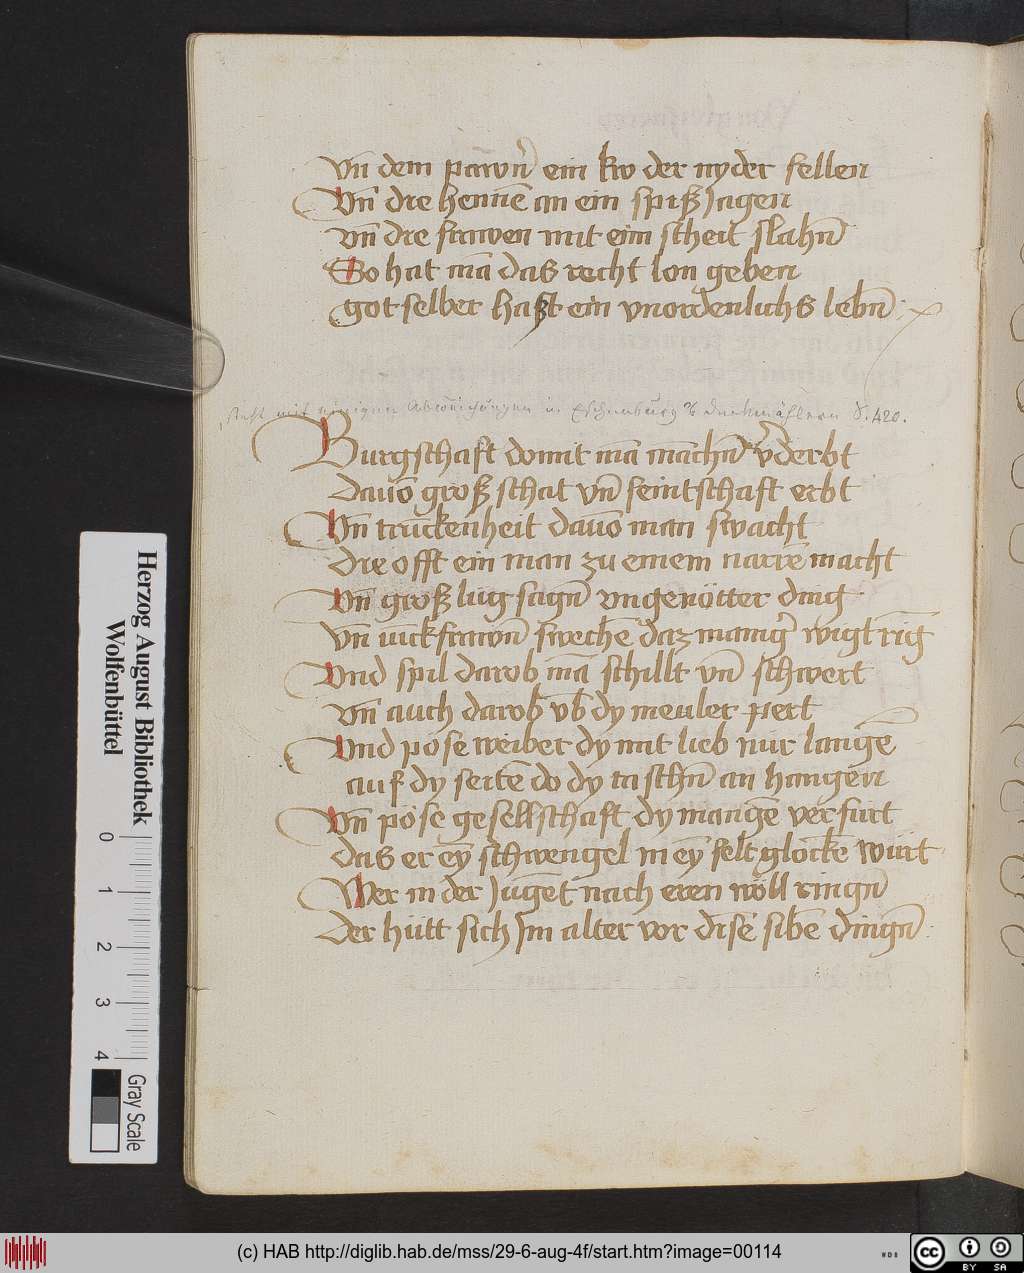 vn̄ dem pawrn̄ ein kw der nyder fellen
Vn̄ dre henne̅ an ein spiß Jagen
vn̄ die frawen mit eim scheit slahn̄
So hat ma̅ das recht lon geben
got selber hast ein vnordenlichs lebn̄
steht mit einigen Abweichungen in Eschenburgs Denkmählern S. 420.
Burgschaft domit ma̅ manchn̄ v̓derbt
Dauo̅ groß schat vn̄ feintschaft erbt
Vn̄ trunckenheit dauo̅ man swacht
Die offt ein man zu einem narre̅ macht
Vn̄ groß lüg sagn̄ vngenötter ding
vn̄ iuckfrawn̄ sweche̅ daz manig̓ wigt ring
Vnd spil darob ma̅ schillt vn̄ schwert
vn̄ auch darob vb̄ dy meuler pert
Vnd pöse weiber dy mit lieb nür lange̅
auf dy seite̅ do dy taschn̄ an hangen
Vn̄ pöse gesellschaft dy mange̅ verfürt
Das er ey̅ schwengel in ey̅ feltglocke̅ würt
Wer in der Jugent nach eren wöll ringn̄
Der hütt sich Im alter vor dise̅ sibe̅ dingn̄
Herzog August Bibliothek
Wolfenbüttel
0 1 2 3 4
Gray Scale
(c) HAB http://diglib.hab.de/mss/29-6-aug-4f/start.htm?image=00114
WDB
cc
BY SA